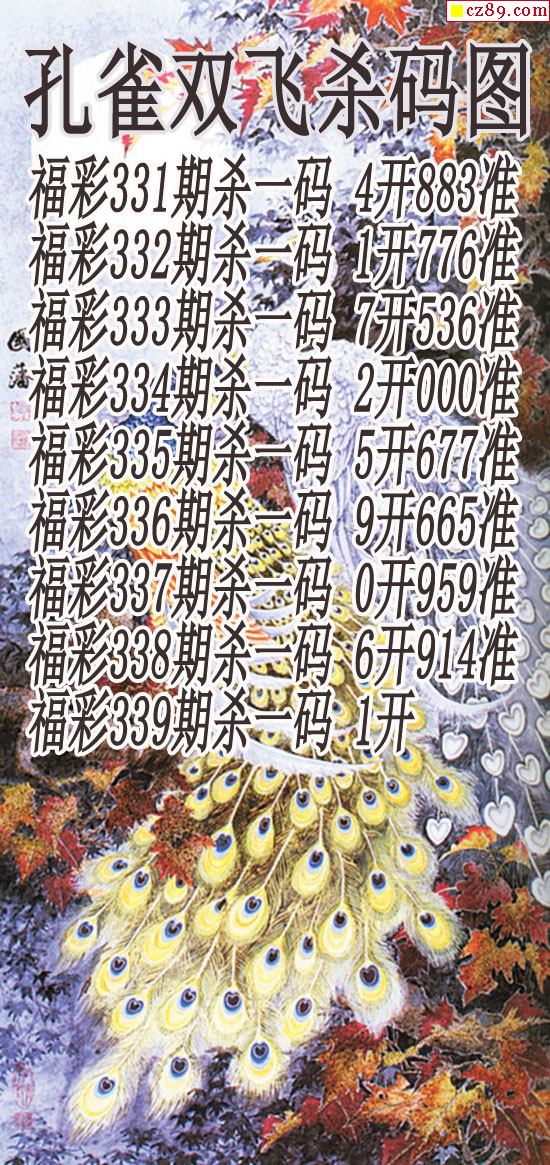 cz89.com
孔雀双飞杀码图
福彩331期杀一码 4开883准
福彩332期杀一码 1开776准
福彩333期杀一码 7开536准
福彩334期杀一码 2开000准
福彩335期杀一码 5开677准
福彩336期杀一码 9开665准
福彩337期杀一码 0开959准
福彩338期杀一码 6开914准
福彩339期杀一码 1开